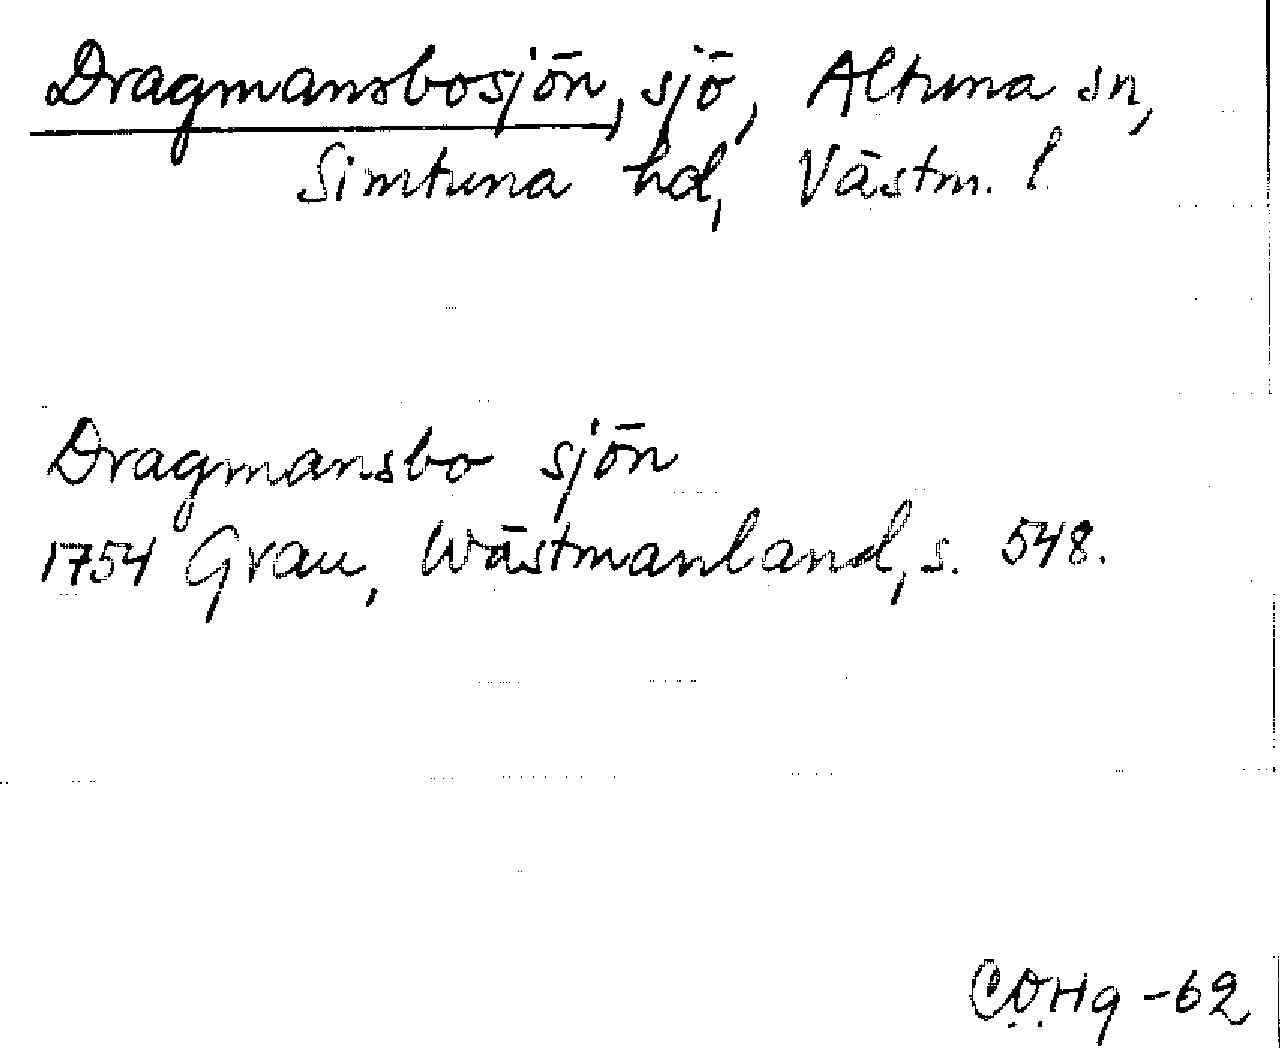 Dragmansbosjön, sjö, Altuna sn,
Simtuna hd, Västm. l.
Dragmansbo sjön
1754 Grau, Wästmanland, s. 548.
COHg -62